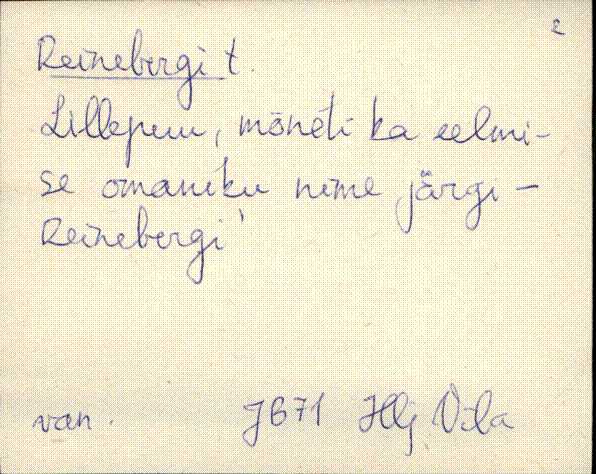 2
Reinebergi t.
Lillepuu, mõneti ka eelmi-
se omaniku nime järgi -
Reinebergi'
van. J671 Hlj Vila